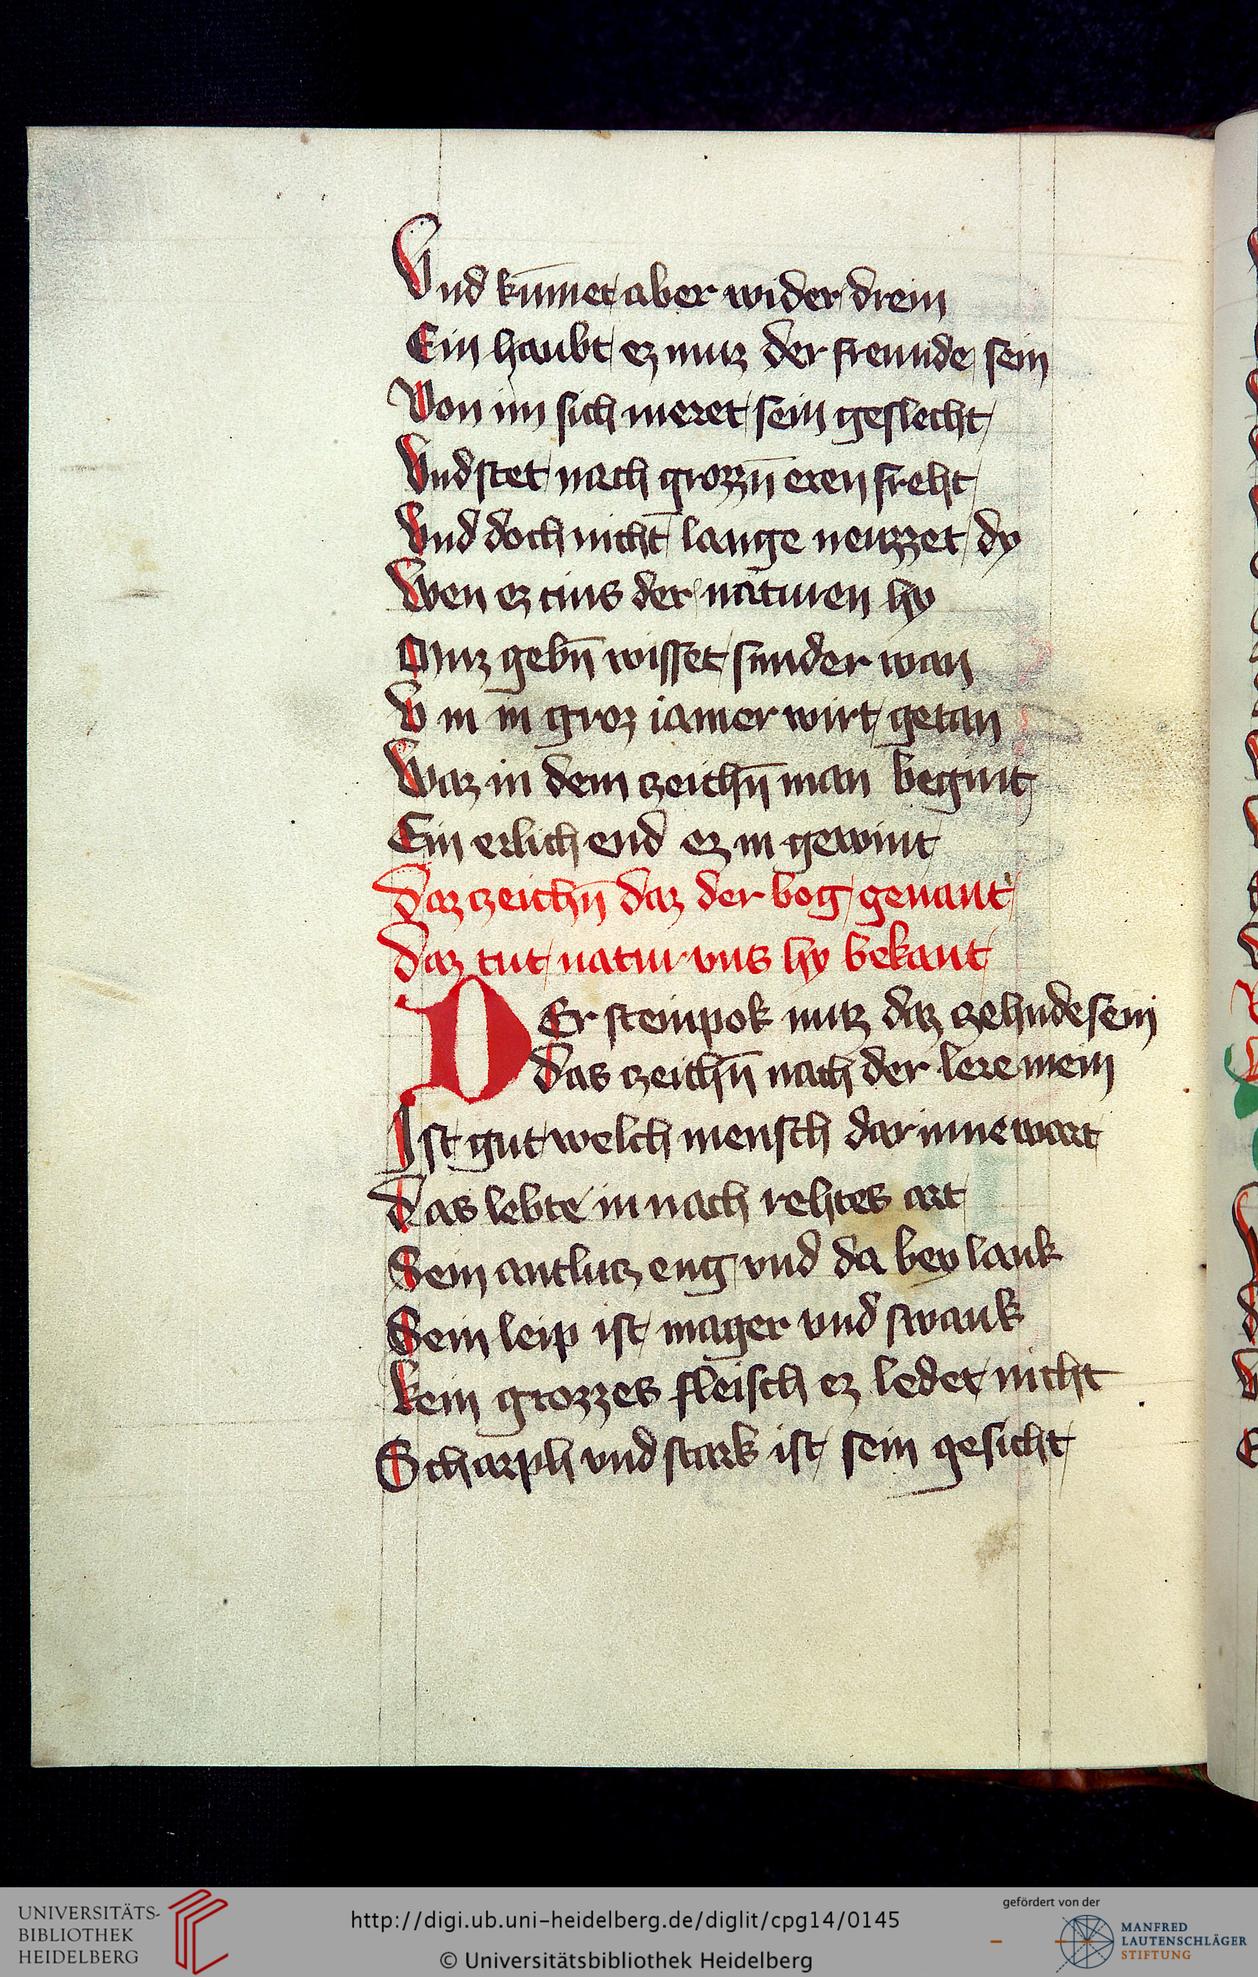 Vnd kūmet aber wider drein
Ein haubt ez muz der freunde sein
Von im sich meret sein geslecht
Vnd stet nach grozzn̄ eren freht
Vnd doch nicht lange neuzzet dy
Wen ez cins der naturen hy
Muz gebn̄ wisset sunder wan
V m in groz iamer wirt getan
Waz in dem zeichn̄ man begint
Ein erlich end ez in gewint
Daz zeichn̄ daz der bog genant
Daz tut natur vns hy bekant
DEr steinpok muz daz zehnde sein
Das zeichn̄ nach der lere mein
Ist gut welch mensch darinne wart
Das lebte in nach rehtes art
Sein antlutz eng vnd da bey lank
Sein leip ist mager vnd swank
Kein grozzes fleisch ez ledet nicht
Scharph vnd stark ist sein gesicht
UNIVERSITÄTS-
BIBLIOTHEK
HEIDELBERG
http://digi.ub.uni-heidelberg.de/diglit/cpg14/0145
© Universitätsbibliothek Heidelberg
gefördert von der
MANFRED
LAUTENSCHLÄGER
STIFTUNG